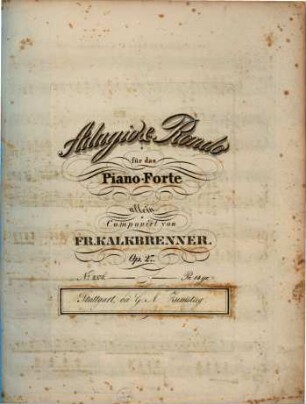 Adagio & Rondo
für das
Piano-Forte
allein
Componirt von
FR. KALKBRENNER.
Op. 27.
No. Pr.
Stuttgart, bei G. A. Zumsteeg